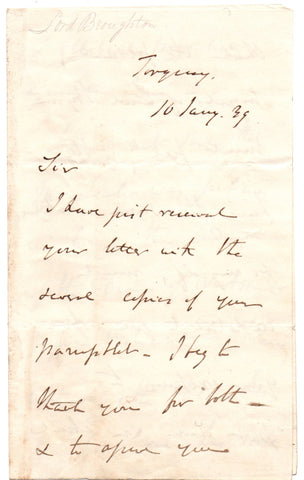 Lord Broughton
Torquay.
10 Jany. 39
Sir
I have just received
your letter with the
several copies of your
pamphlet - I beg to
thank you for both -
& to assure you